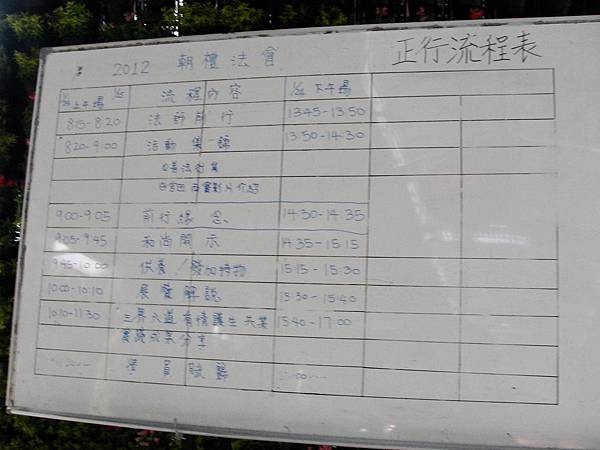 2012 朝禮法會
正行流程表
上午場 流程內容 1/24 下午場
8:15-8:20 法師前行 13:45-13:50
8:20-9:00 活動集錦 13:50-14:30
9:00-9:05 前行緣念 14:30-14:35
9:05-9:45 和尚開示 14:35-15:15
9:45-10:00 供養/發加持物 15:15-15:30
10:00-10:10 展覽解說 15:30-15:40
10:10-11:30 三界六道有情護生共業 15:40-17:00
實踐成果分享
學員